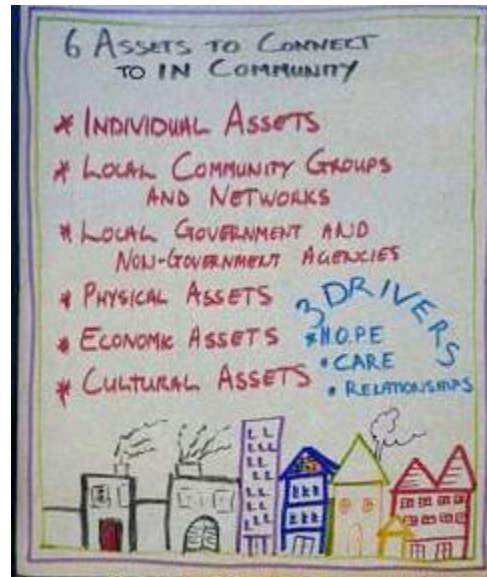 6 ASSETS TO CONNECT
TO IN COMMUNITY
* INDIVIDUAL ASSETS
* LOCAL COMMUNITY GROUPS
AND NETWORKS
* LOCAL GOVERNMENT AND
NON-GOVERNMENT AGENCIES
* PHYSICAL ASSETS
* ECONOMIC ASSETS
* CULTURAL ASSETS
3 DRIVERS
* H.O.P.E
• CARE
• RELATIONSHIPS